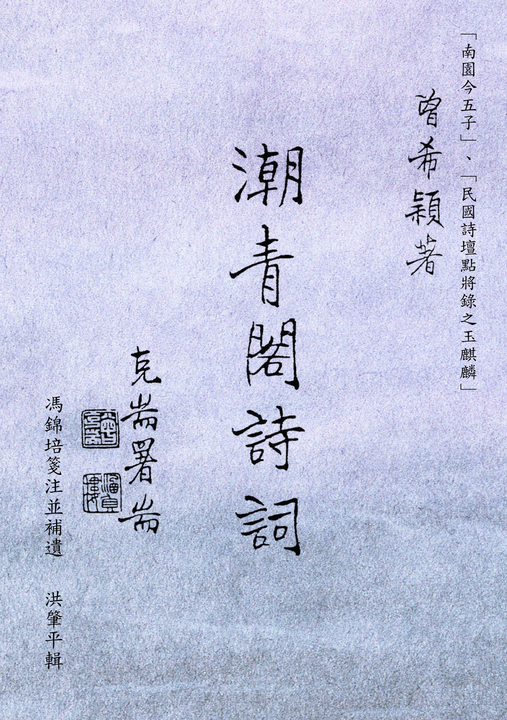 「南園今五子」、「民國詩壇點將錄之玉麒麟」
曾希穎著
潮青閣詩詞
克耑署耑
馮錦培箋注並補遺　洪肇平輯